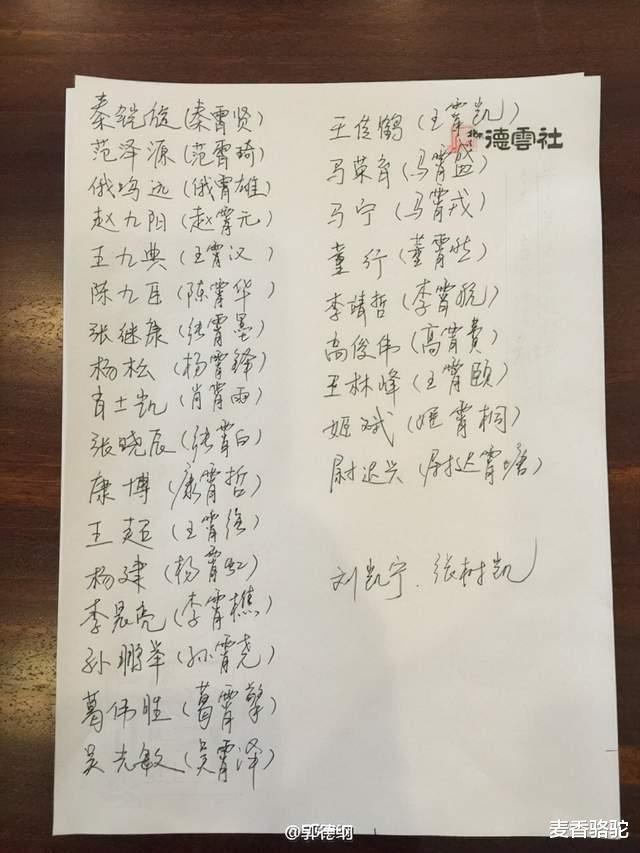 秦铠俊(秦霄贤)
范泽源(范霄琦)
俄鸣远(俄霄雄)
赵九阳(赵霄元)
王九典(王霄汉)
陈九臣(陈霄华)
张继康(张霄墨)
杨松(杨霄锋)
肖士凯(肖霄雨)
张晓辰(张霄白)
康博(康霄哲)
王超(王霄)
杨建(杨霄虹)
李晨亮(李霄樵)
孙鹏举(孙霄尧)
葛伟胜(葛霄擎)
吴光敏(吴霄泽)
王佳鹤(王霄凯)
德雲社
马荣奇(马霄盛)
马宁(马霄戎)
董行(董霄然)
李靖哲(李霄航)
高俊伟(高霄贵)
王林峰(王霄颐)
姬斌(姬霄桐)
尉迟兴(尉迟霄塘)
刘凯宁.张树凯
@郭德纲
麦香骆驼